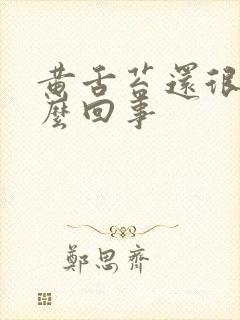 黄舌苔還很
麼回事
鄭思齊